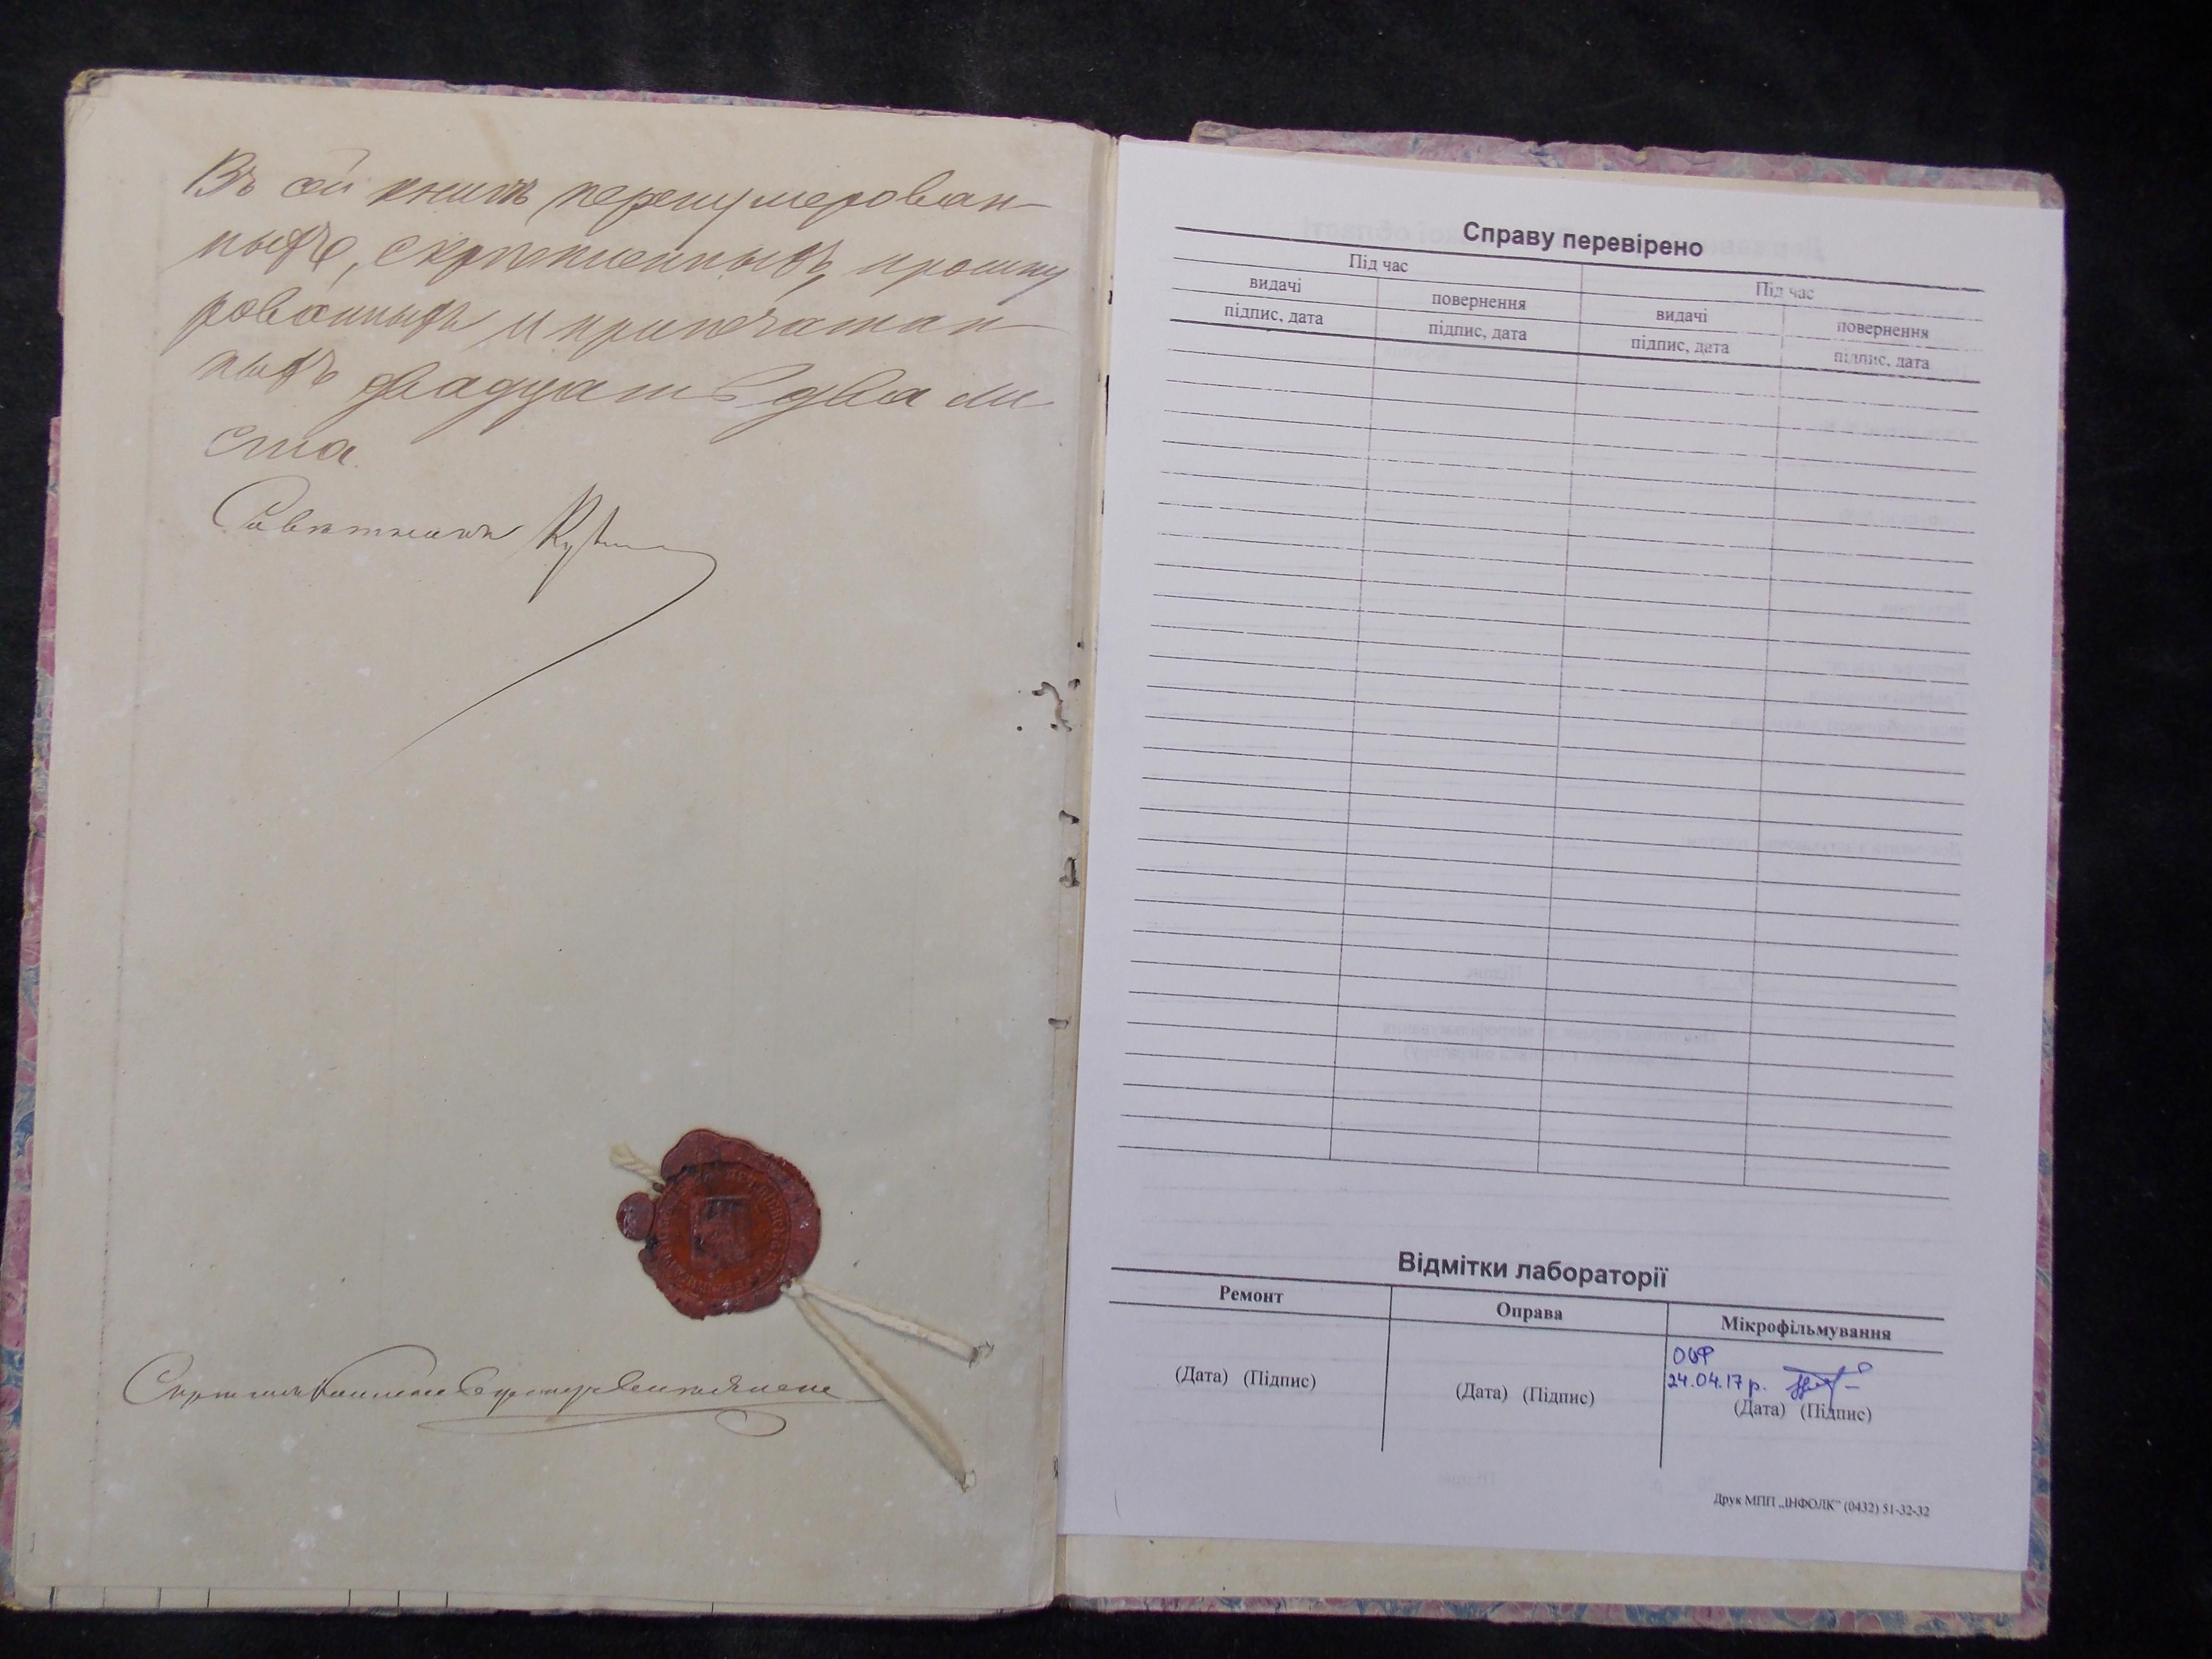 Въ сей книгѣ перенумерован-
ныхъ, скрѣпленныхъ, прошну
рованныхъ и припечатан-
ныхъ двадцать два ли
ста.
Совѣтникъ
Справу перевірено
Під час Під час
видачі повернення видачі повернення
підпис, дата підпис, дата підпис, дата підпис, дата
Відмітки лабораторії
Ремонт Оправа Мікрофільмування
24.04.17 р.
(Дата) (Підпис) (Дата) (Підпис) (Дата) (Підпис)
Друк МПП „ІНФОЛК" (0432) 51-32-32